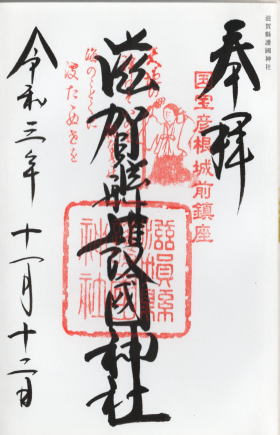 滋賀縣護國神社
奉拝
国宝彦根城前鎮座
滋賀縣護國神社
滋賀縣護國神社
令和三年 十一月十二日